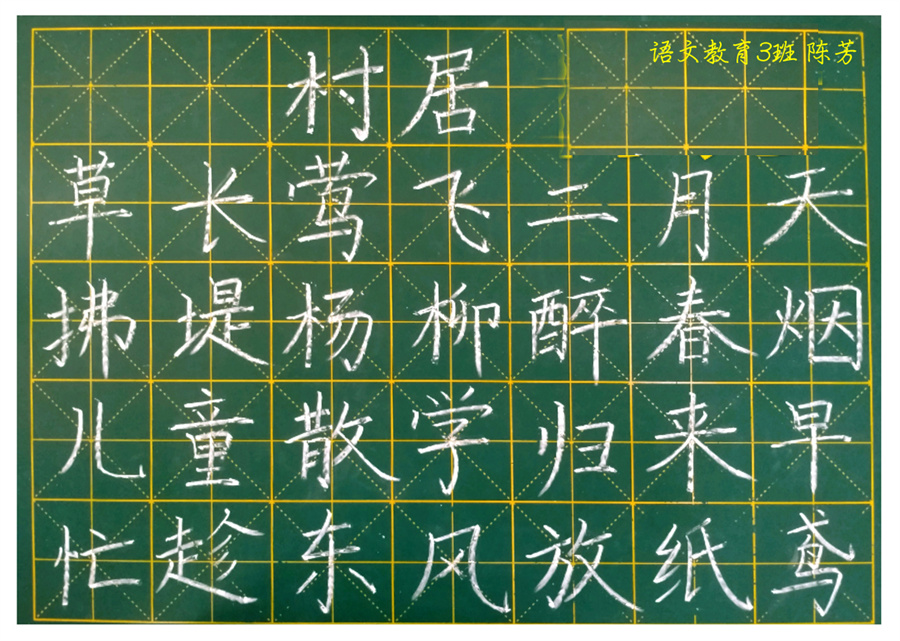 语文教育3班 陈芳
村居
草长莺飞二月天
拂堤杨柳醉春烟
儿童散学归来早
忙趁东风放纸鸢